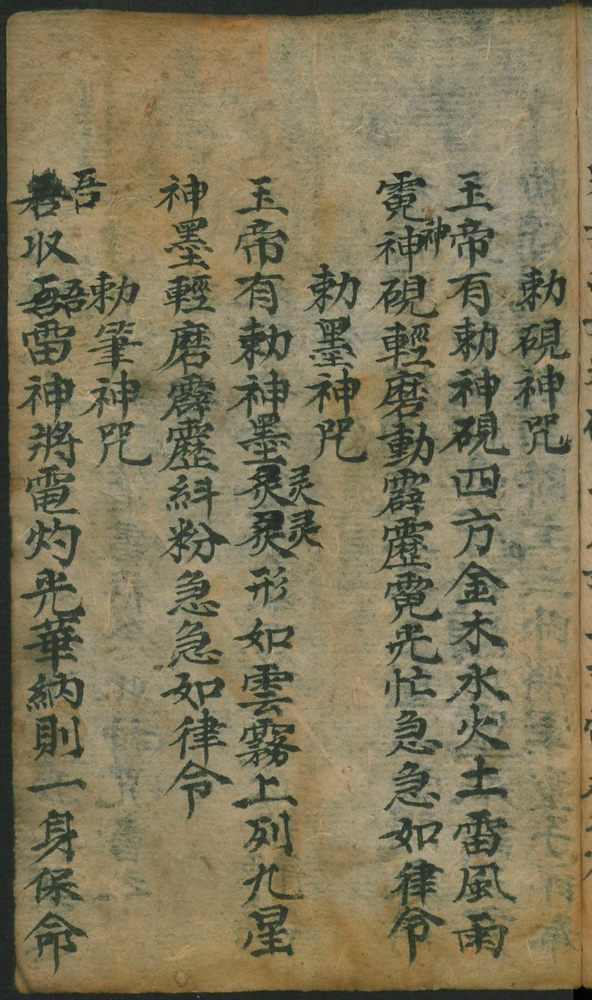 勅硯神咒
玉帝有勅神硯四方金木水火土雷風雨
霓神硯輕磨動霹靂霓光忙急急如律令
神
勅墨神咒
玉帝有勅神墨炅炅形如雲霧上列九星
灵灵
神墨輕磨霹靂紏粉急急如律令
勅筆神咒
吾
收雷神將電灼光華納則一身保命